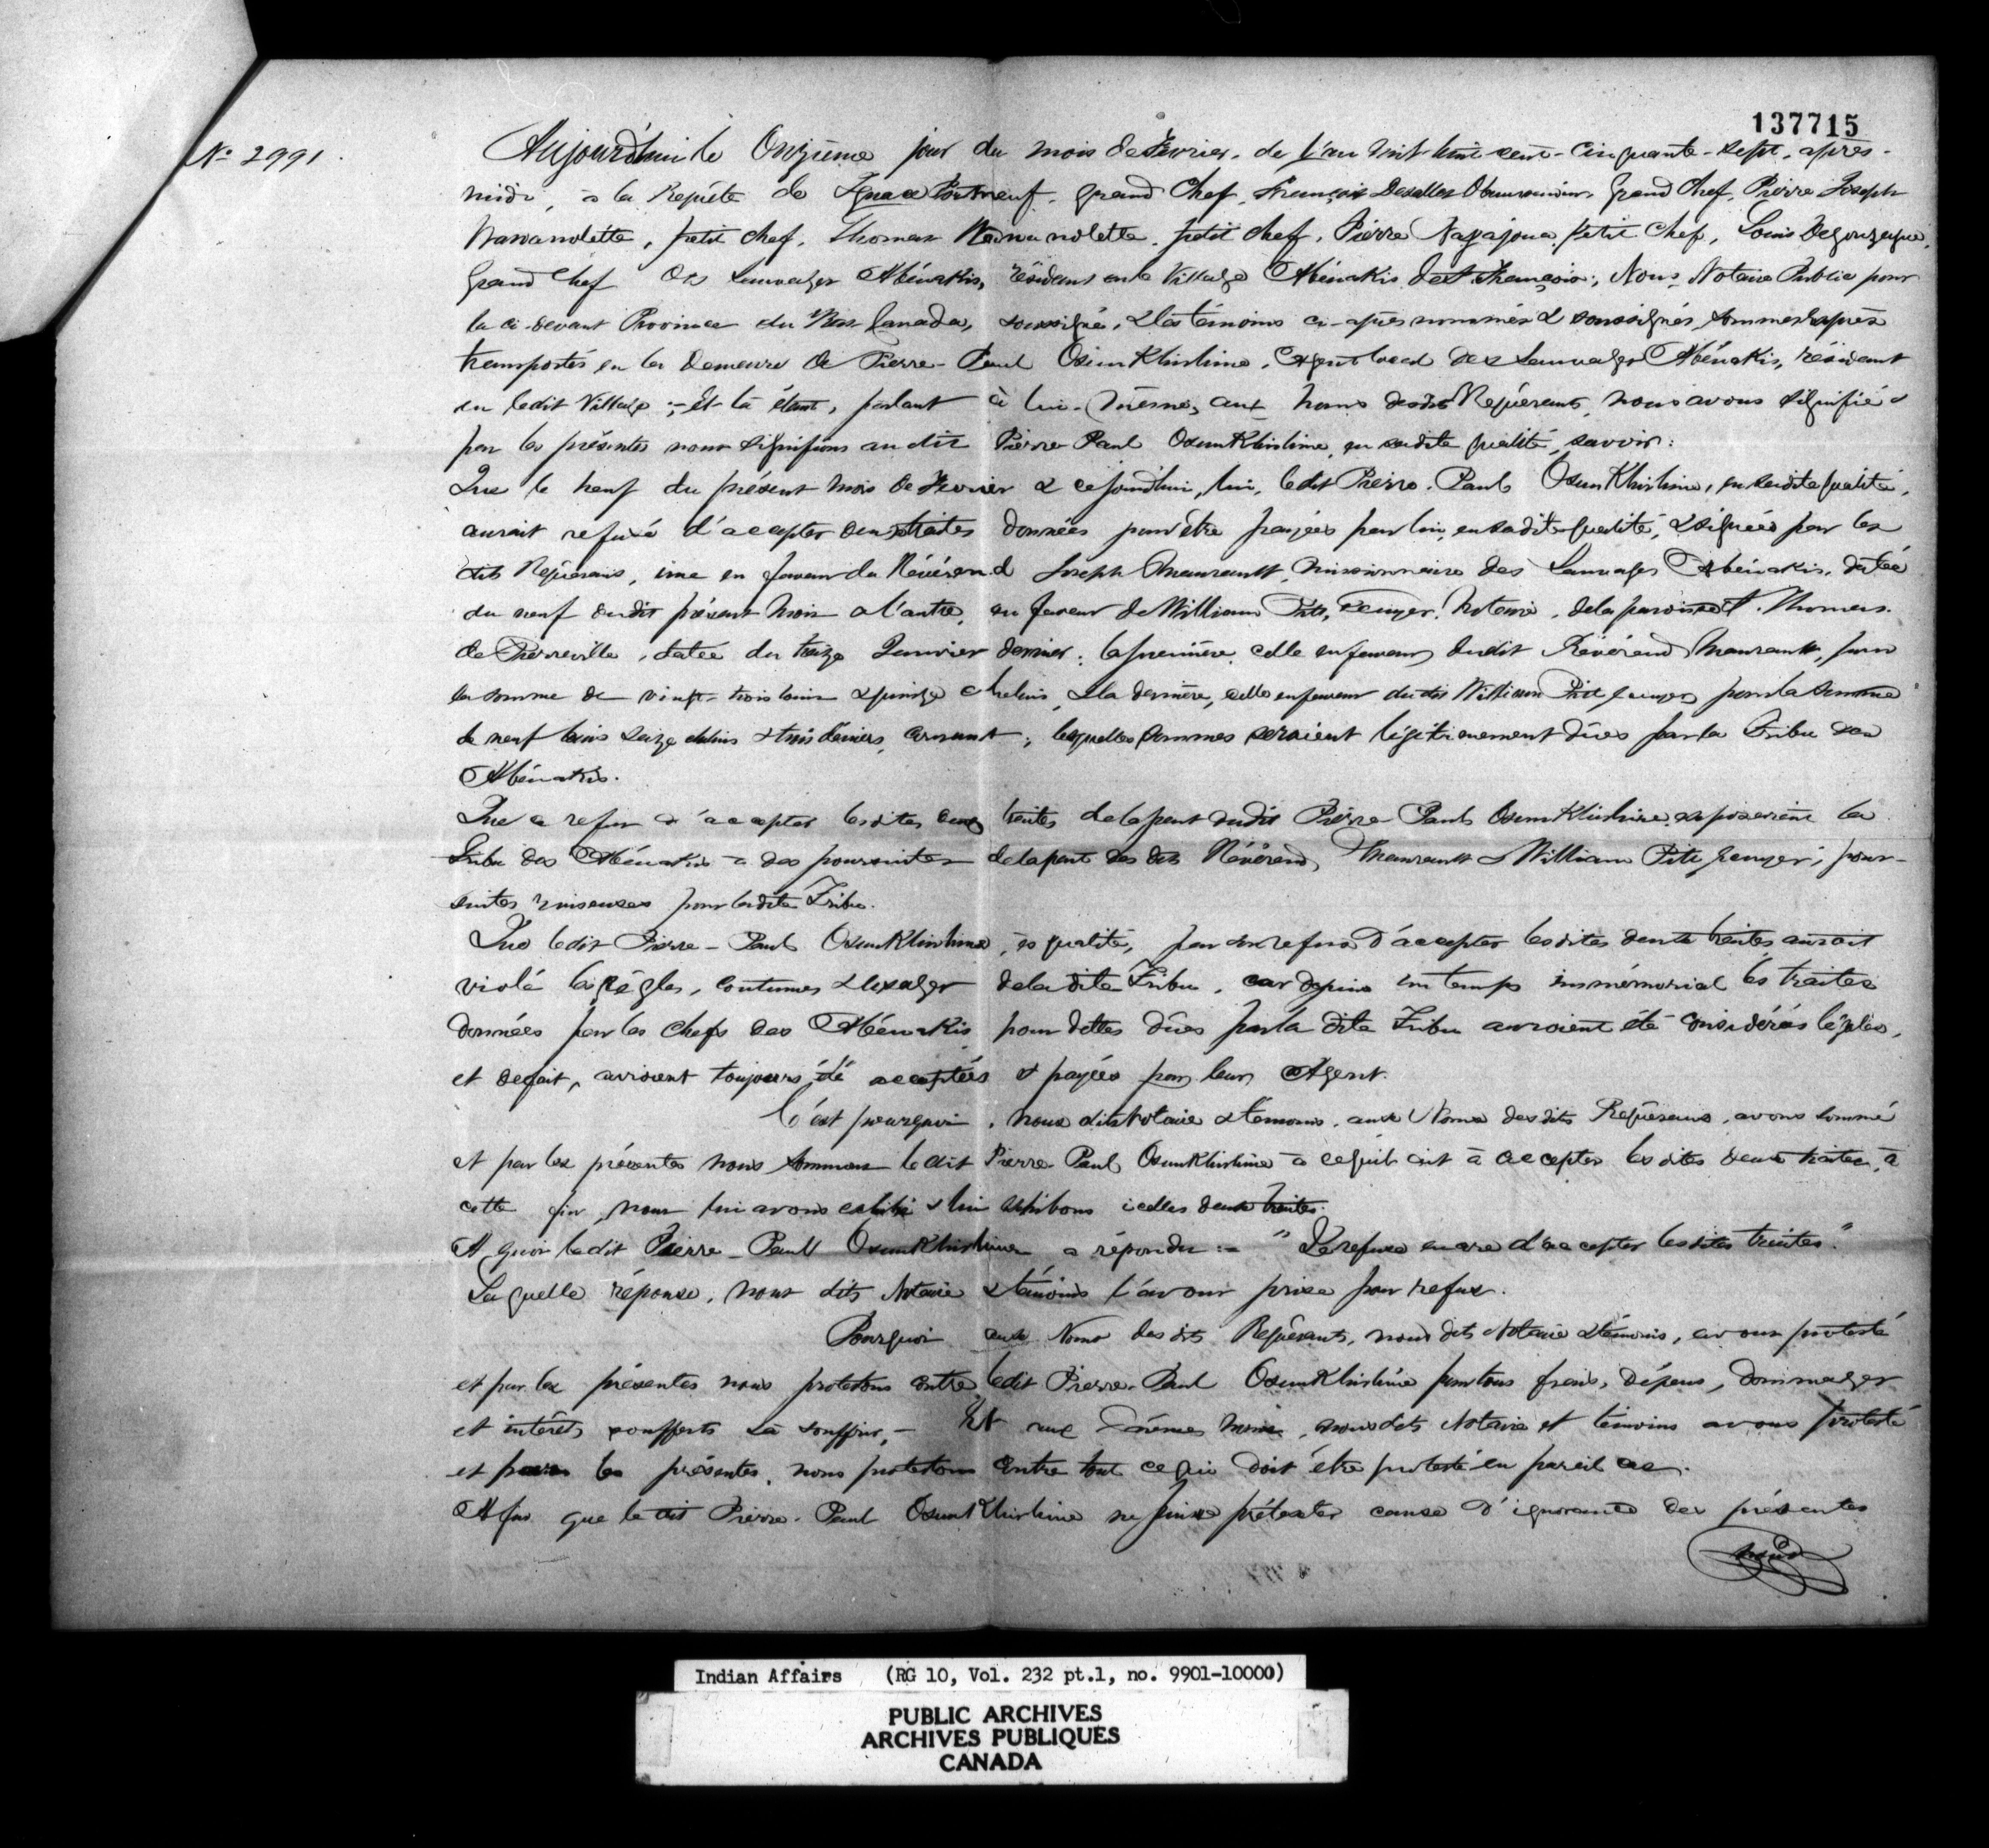 137715
No 2991.
Aujourd'hui le Onzième jour du mois de Février, de l'an mil huit cent cinquante-sept, après-
midi, à la Requête de Ignace Portneuf, grand Chef, François Desalles Obomsawin, Grand Chef, Pierre Joseph
Wawanolette, petit chef, Thomas Wawanolette, petit chef, Pierre Nagajoua, petit Chef, Louis Degonzague,
Grand Chef des Sauvages Abénakis, résidant en le Village Abénakis de St. François; Nous, Notaire Public pour
la ci-devant Province du Bas Canada, soussigné, & les témoins ci-après nommés & soussignés, sommes exprès
transportés en la Demeure de Pierre-Paul Osunkhirhine, Agent local des Sauvages Abénakis, résidant
en ledit Village; Et là étant, parlant à lui-même, aux noms desdits Requérants, nous avons signifié &
par les présentes nous signifions au dit Pierre Paul Osunkhirhine, en sadite qualité, savoir:
Que le neuf du présent mois de Février & cejourd'hui, lui, ledit Pierre-Paul Osunkhirhine, en sadite qualité,
aurait refusé d'accepter deux traites données pour être payées par lui, en sadite qualité, & signées par les
dits Requérants, une en faveur du Révérend Joseph Maurault, Missionnaire des Sauvages Abénakis, datée
du neuf dudit présent mois & l'autre, en faveur de William Pitt, Ecuyer, Notaire, de la paroisse St. Thomas
de Pierreville, datée du treize Janvier dernier; la première, celle en faveur dudit Révérend Maurault, pour
la somme de vingt-trois louis & quinze chelins, & la dernière, celle en faveur du dit William Pitt Ecuyer pour la somme
de neuf louis seize chelins & trois deniers, courant; lesquelles sommes seraient légitimement dûes par la Tribu des
Abénakis.
Que ce refus d'accepter lesdites deux traites de la part dudit Pierre Paul Osunkhirhine, exposeraient la
Tribu des Abénakis à des poursuites de la part des dits Révérend Maurault & William Pitt Ecuyer, pour-
suites ruineuses pour ladite Tribu.
Que ledit Pierre-Paul Osunkhirhine, ès qualité, par son refus d'accepter lesdites deux traites aurait
violé les règles, coutumes & usages de la dite Tribu, car depuis un temps immémorial les traites
données par les chefs des Abénakis, pour dettes dûes par la dite Tribu auraient été considérées légales,
et de fait, auraient toujours été acceptées & payées par leur Agent.
C'est pourquoi, nous dits Notaire & témoins, aux Noms desdits Requérans, avons sommé
et par les présentes nous sommons le dit Pierre Paul Osunkhirhine à ce qu'il ait à accepter les dites deux traites, à
cette fin, nous lui avons exhibé & lui exhibons icelles deux traites.
A quoi ledit Pierre-Paul Osunkhirhine a répondu:- "Je refuse encore d'accepter lesdites traites."
Laquelle réponse, nous dits Notaire & témoins l'avons prise pour refus.
Pourquoi aux Noms des dits Requérants, nous dits Notaire & témoins, avons protesté
et par les présentes nous protestons contre ledit Pierre-Paul Osunkhirhine pour tous frais, dépens, dommages
et intérêts soufferts & à souffrir, - Et aux mêmes noms, nous dits Notaire et témoins avons protesté
et par les présentes, nous protestons contre tout ce qui doit être protesté en pareil cas.
Afin que le dit Pierre-Paul Osunkhirhine ne puisse prétexter cause d'ignorance des présentes
Indian Affairs (RG 10, Vol. 232 pt.1, no. 9901-10000)
PUBLIC ARCHIVES
ARCHIVES PUBLIQUES
CANADA